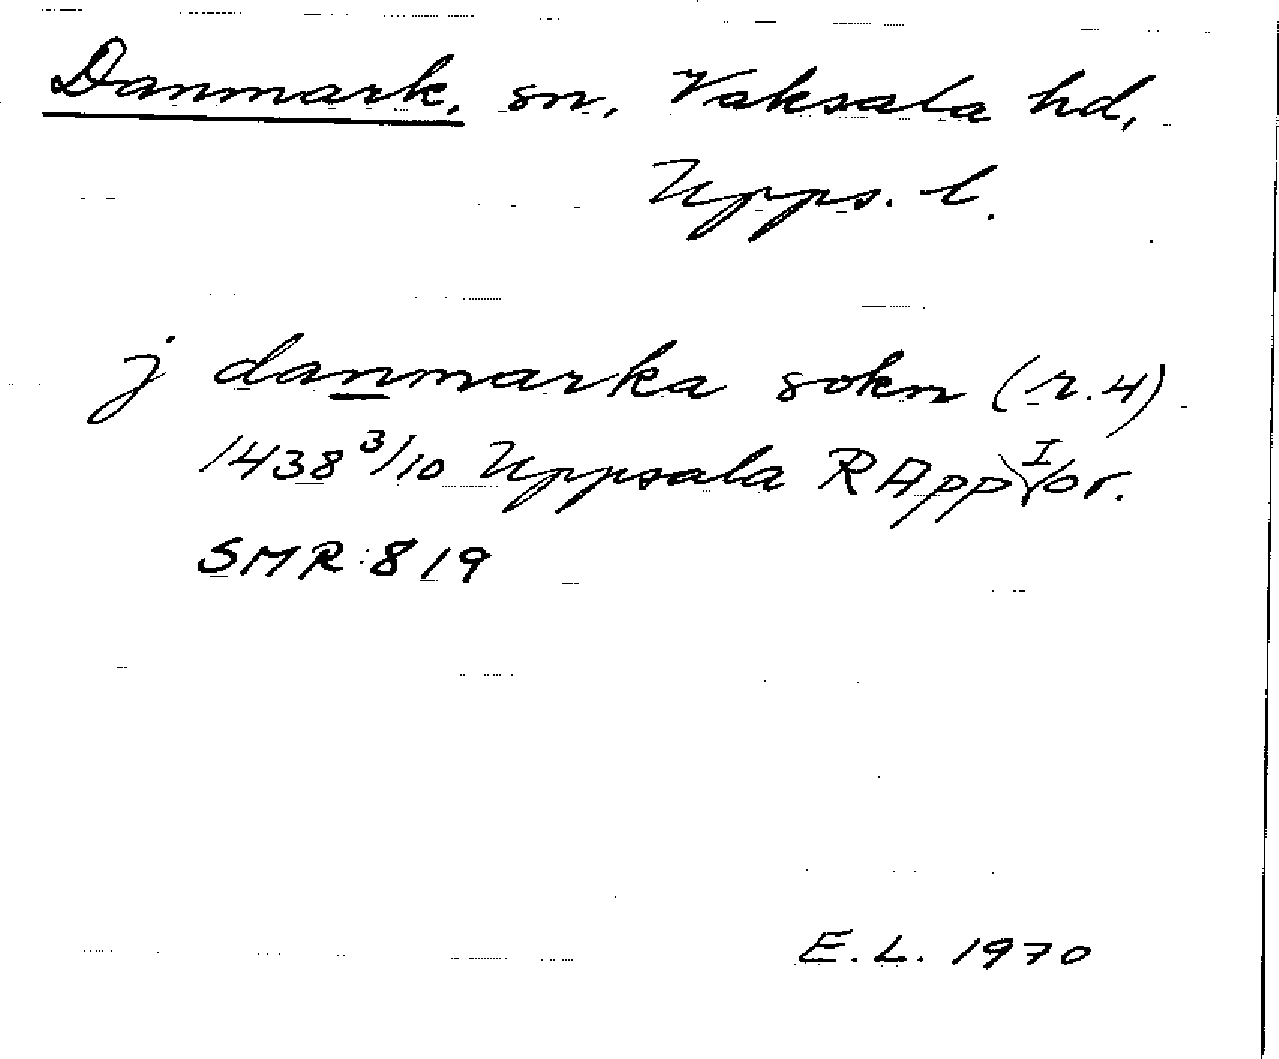 Danmark, sn, Vaksala hd,
Upps. l.
j danmarka sokn (r.4)
1438 3/10 Uppsala RApp I or.
SMR 819
E.L. 1970